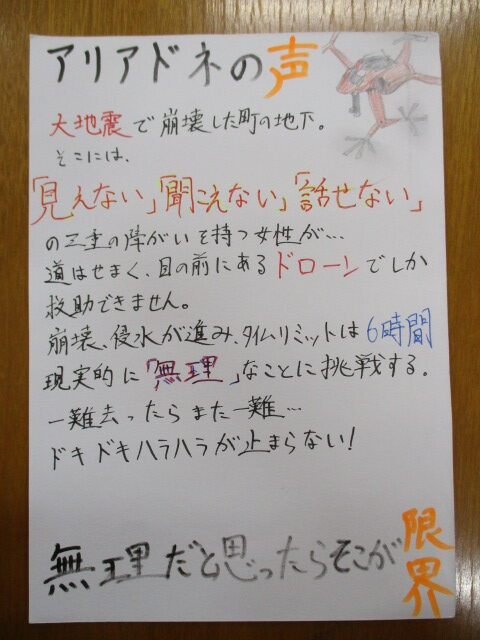 アリアドネの声
大地震で崩壊した町の地下。
そこには、
「見えない」「聞こえない」「話せない」
の三重の障がいを持つ女性が…
道はせまく、目の前にあるドローンでしか
救助できません。
崩壊、侵水が進み、タイムリミットは6時間
現実的に「無理」なことに挑戦する。
一難去ったらまた一難…
ドキドキハラハラが止まらない!
無理だと思ったらそこが限界